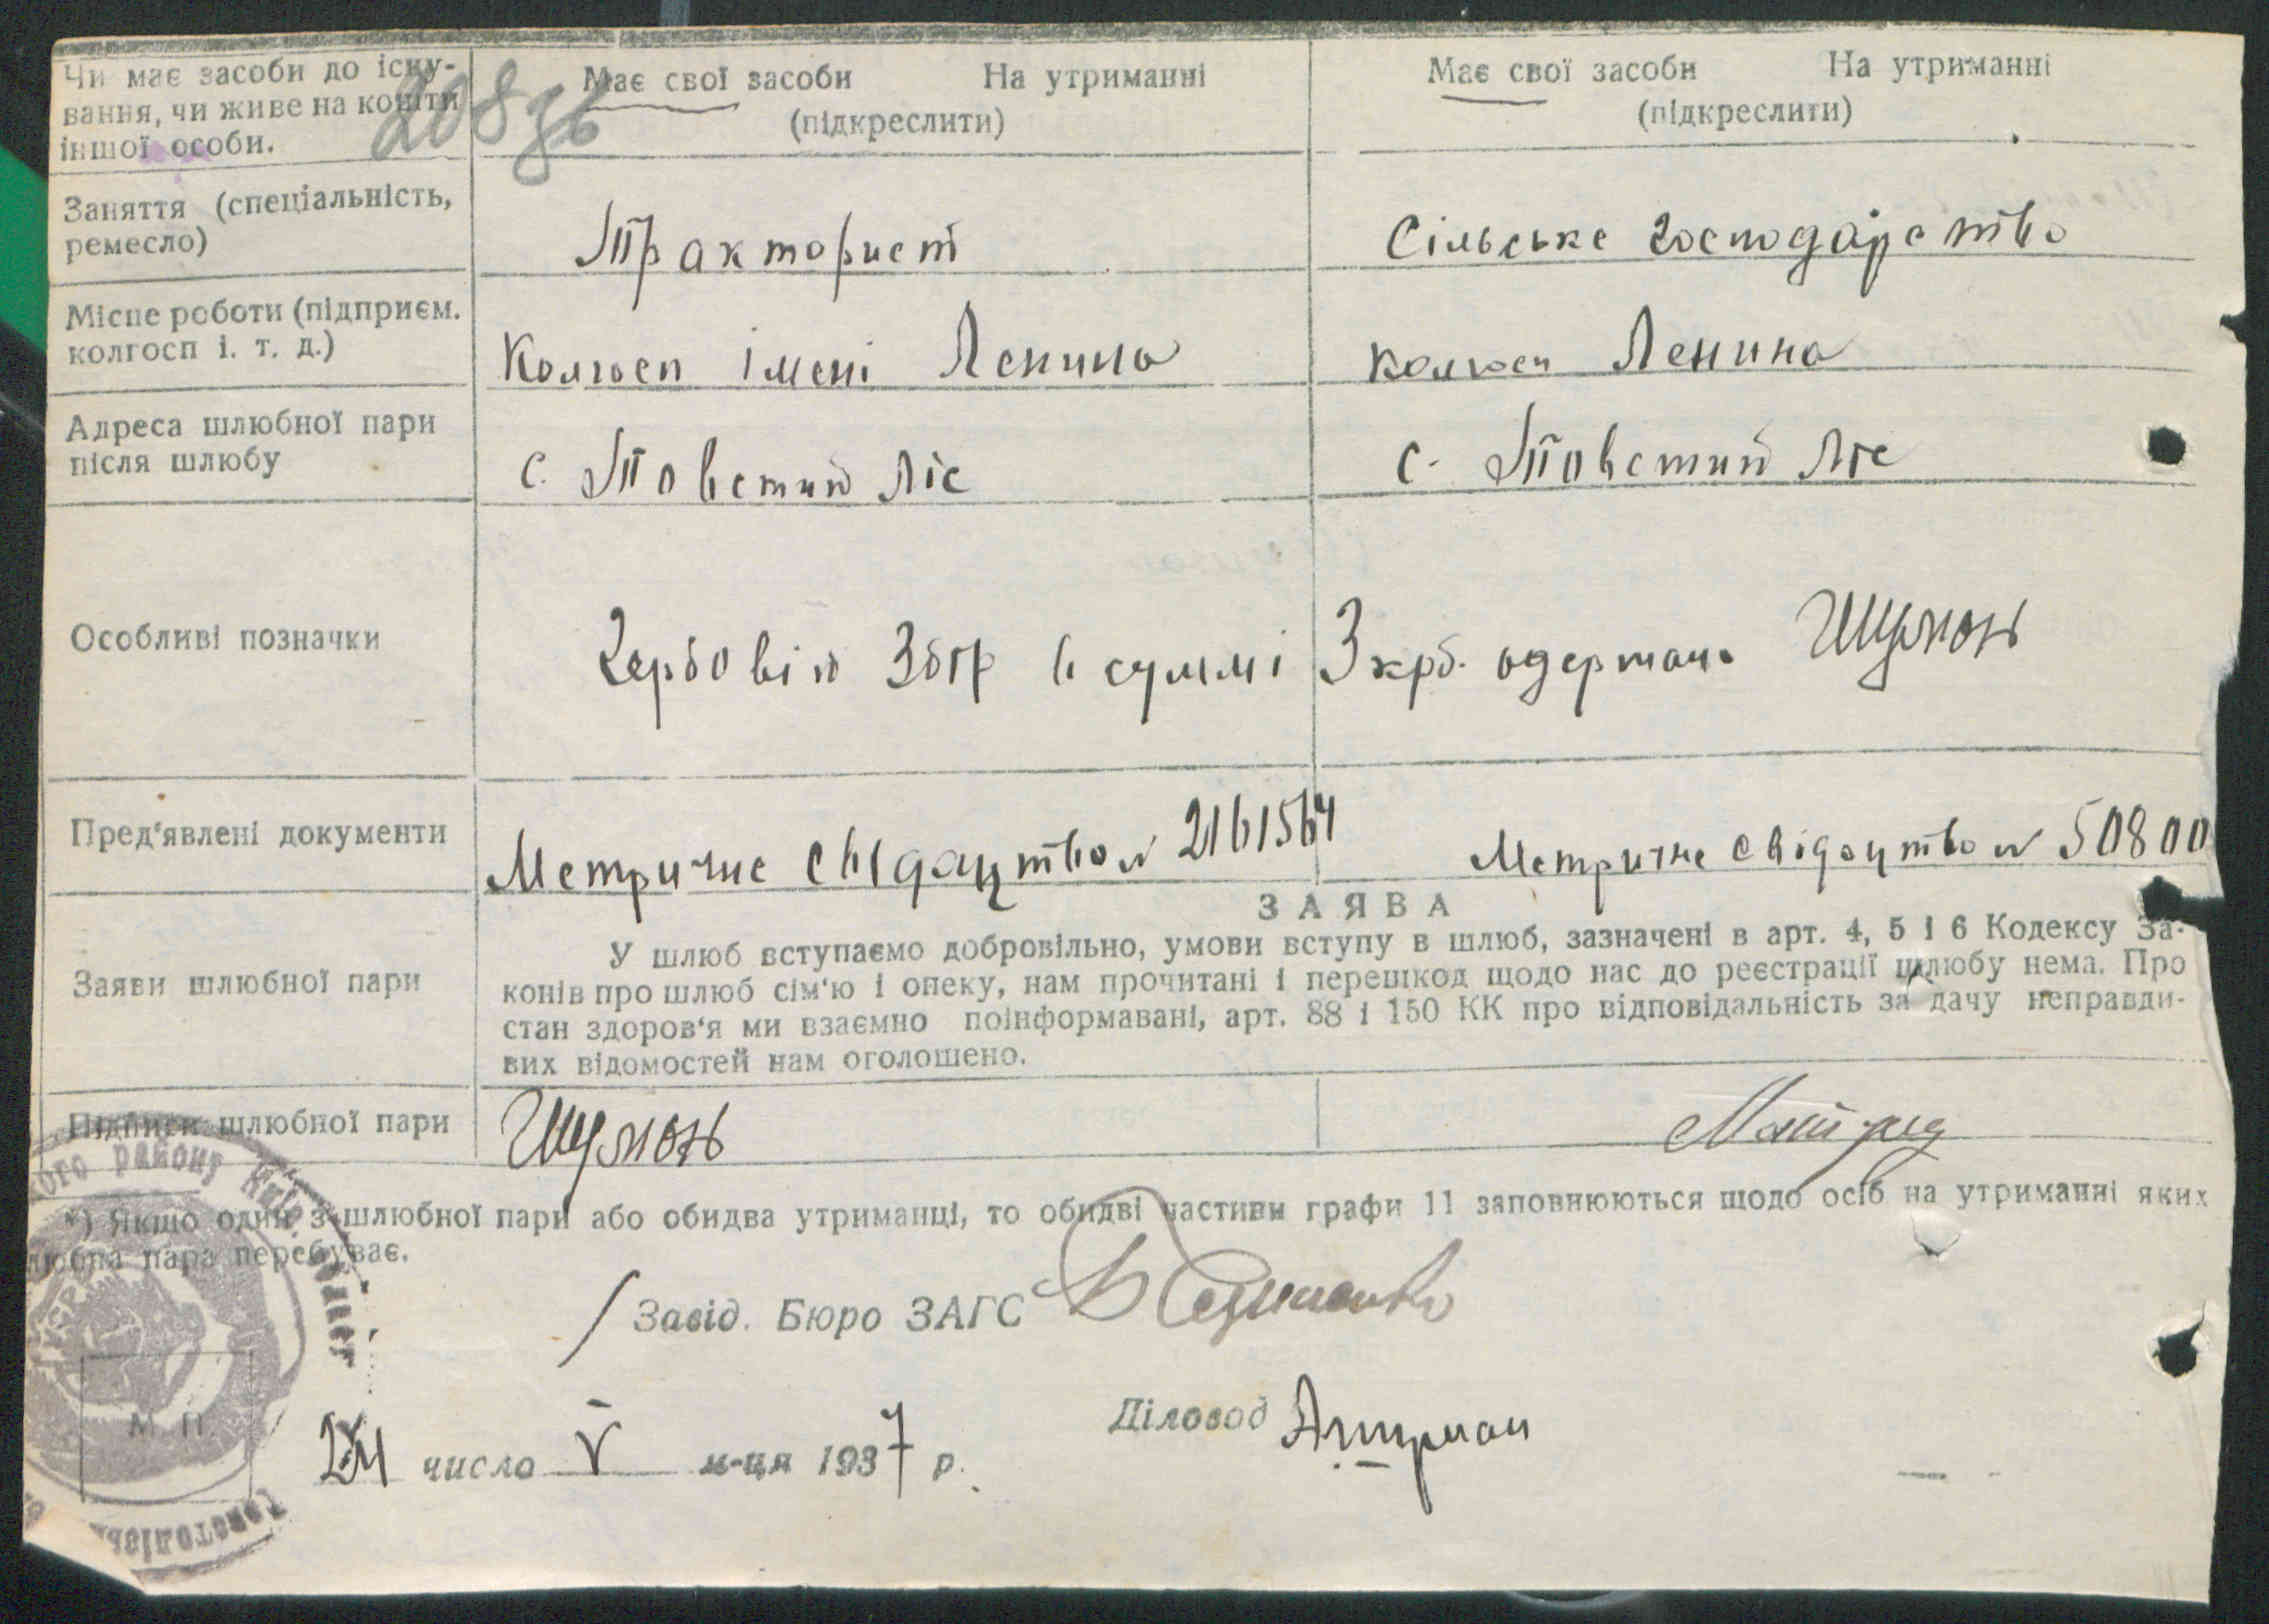 Чи має засоби до існу-
вання, чи живе на кошти
іншої особи.
Має свої засоби На утриманні
(підкреслити)
Має свої засоби На утриманні
(підкреслити)
Заняття (спеціальність,
ремесло)
Тракторист
Сільське господарство
Місце роботи (підприєм.
колгосп і. т. д.)
Колгосп імені Ленина
колгосп Ленина
Адреса шлюбної пари
після шлюбу
с. Товстий Ліс
с. Товстий Ліс
Особливі позначки
Гербовій збір в суммі 3 крб. одержано
Пред'явлені документи
Метричне свідацтво № 2161564
Метричне свідоцтво № 50800
ЗАЯВА
Заяви шлюбної пари
У шлюб вступаємо добровільно, умови вступу в шлюб, зазначені в арт. 4, 5 і 6 Кодексу За-
конів про шлюб сім'ю і опеку, нам прочитані і перешкод щодо нас до реєстрації шлюбу нема. Про
стан здоров'я ми взаємно поінформавані, арт. 88 і 150 КК про відповідальність за дачу неправди-
вих відомостей нам оголошено.
Підписи шлюбної пари
*) Якщо один з шлюбної пари або обидва утриманці, то обидві частини графи 11 заповнюються щодо осіб на утриманні яких
любна пара перебуває.
Завід. Бюро ЗАГС
Діловод
М. П.
24 число V м-ця 1937 р.